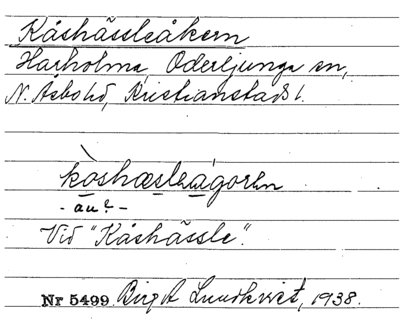 Kåshässleåkern
Harholma, Oderljunga sn,
N. Åsbo hd, Kristianstads l.
kòshæsleágorn
- au? -
Vid "Kåshässle".
Nr 5499. Birgit Lundkvist, 1938.